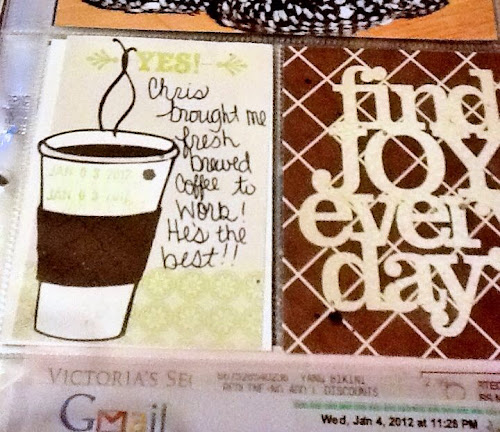 YES!
Chris
brought me
fresh
brewed
Coffee to
Work!
Hes the
best!!
JAN 0 3 2012
find
JOY
every
day
VICTORIA'S SE
YANG BIKINI
DISCOUNTS
Gmail
Wed, Jan 4, 2012 at 11:28 PM